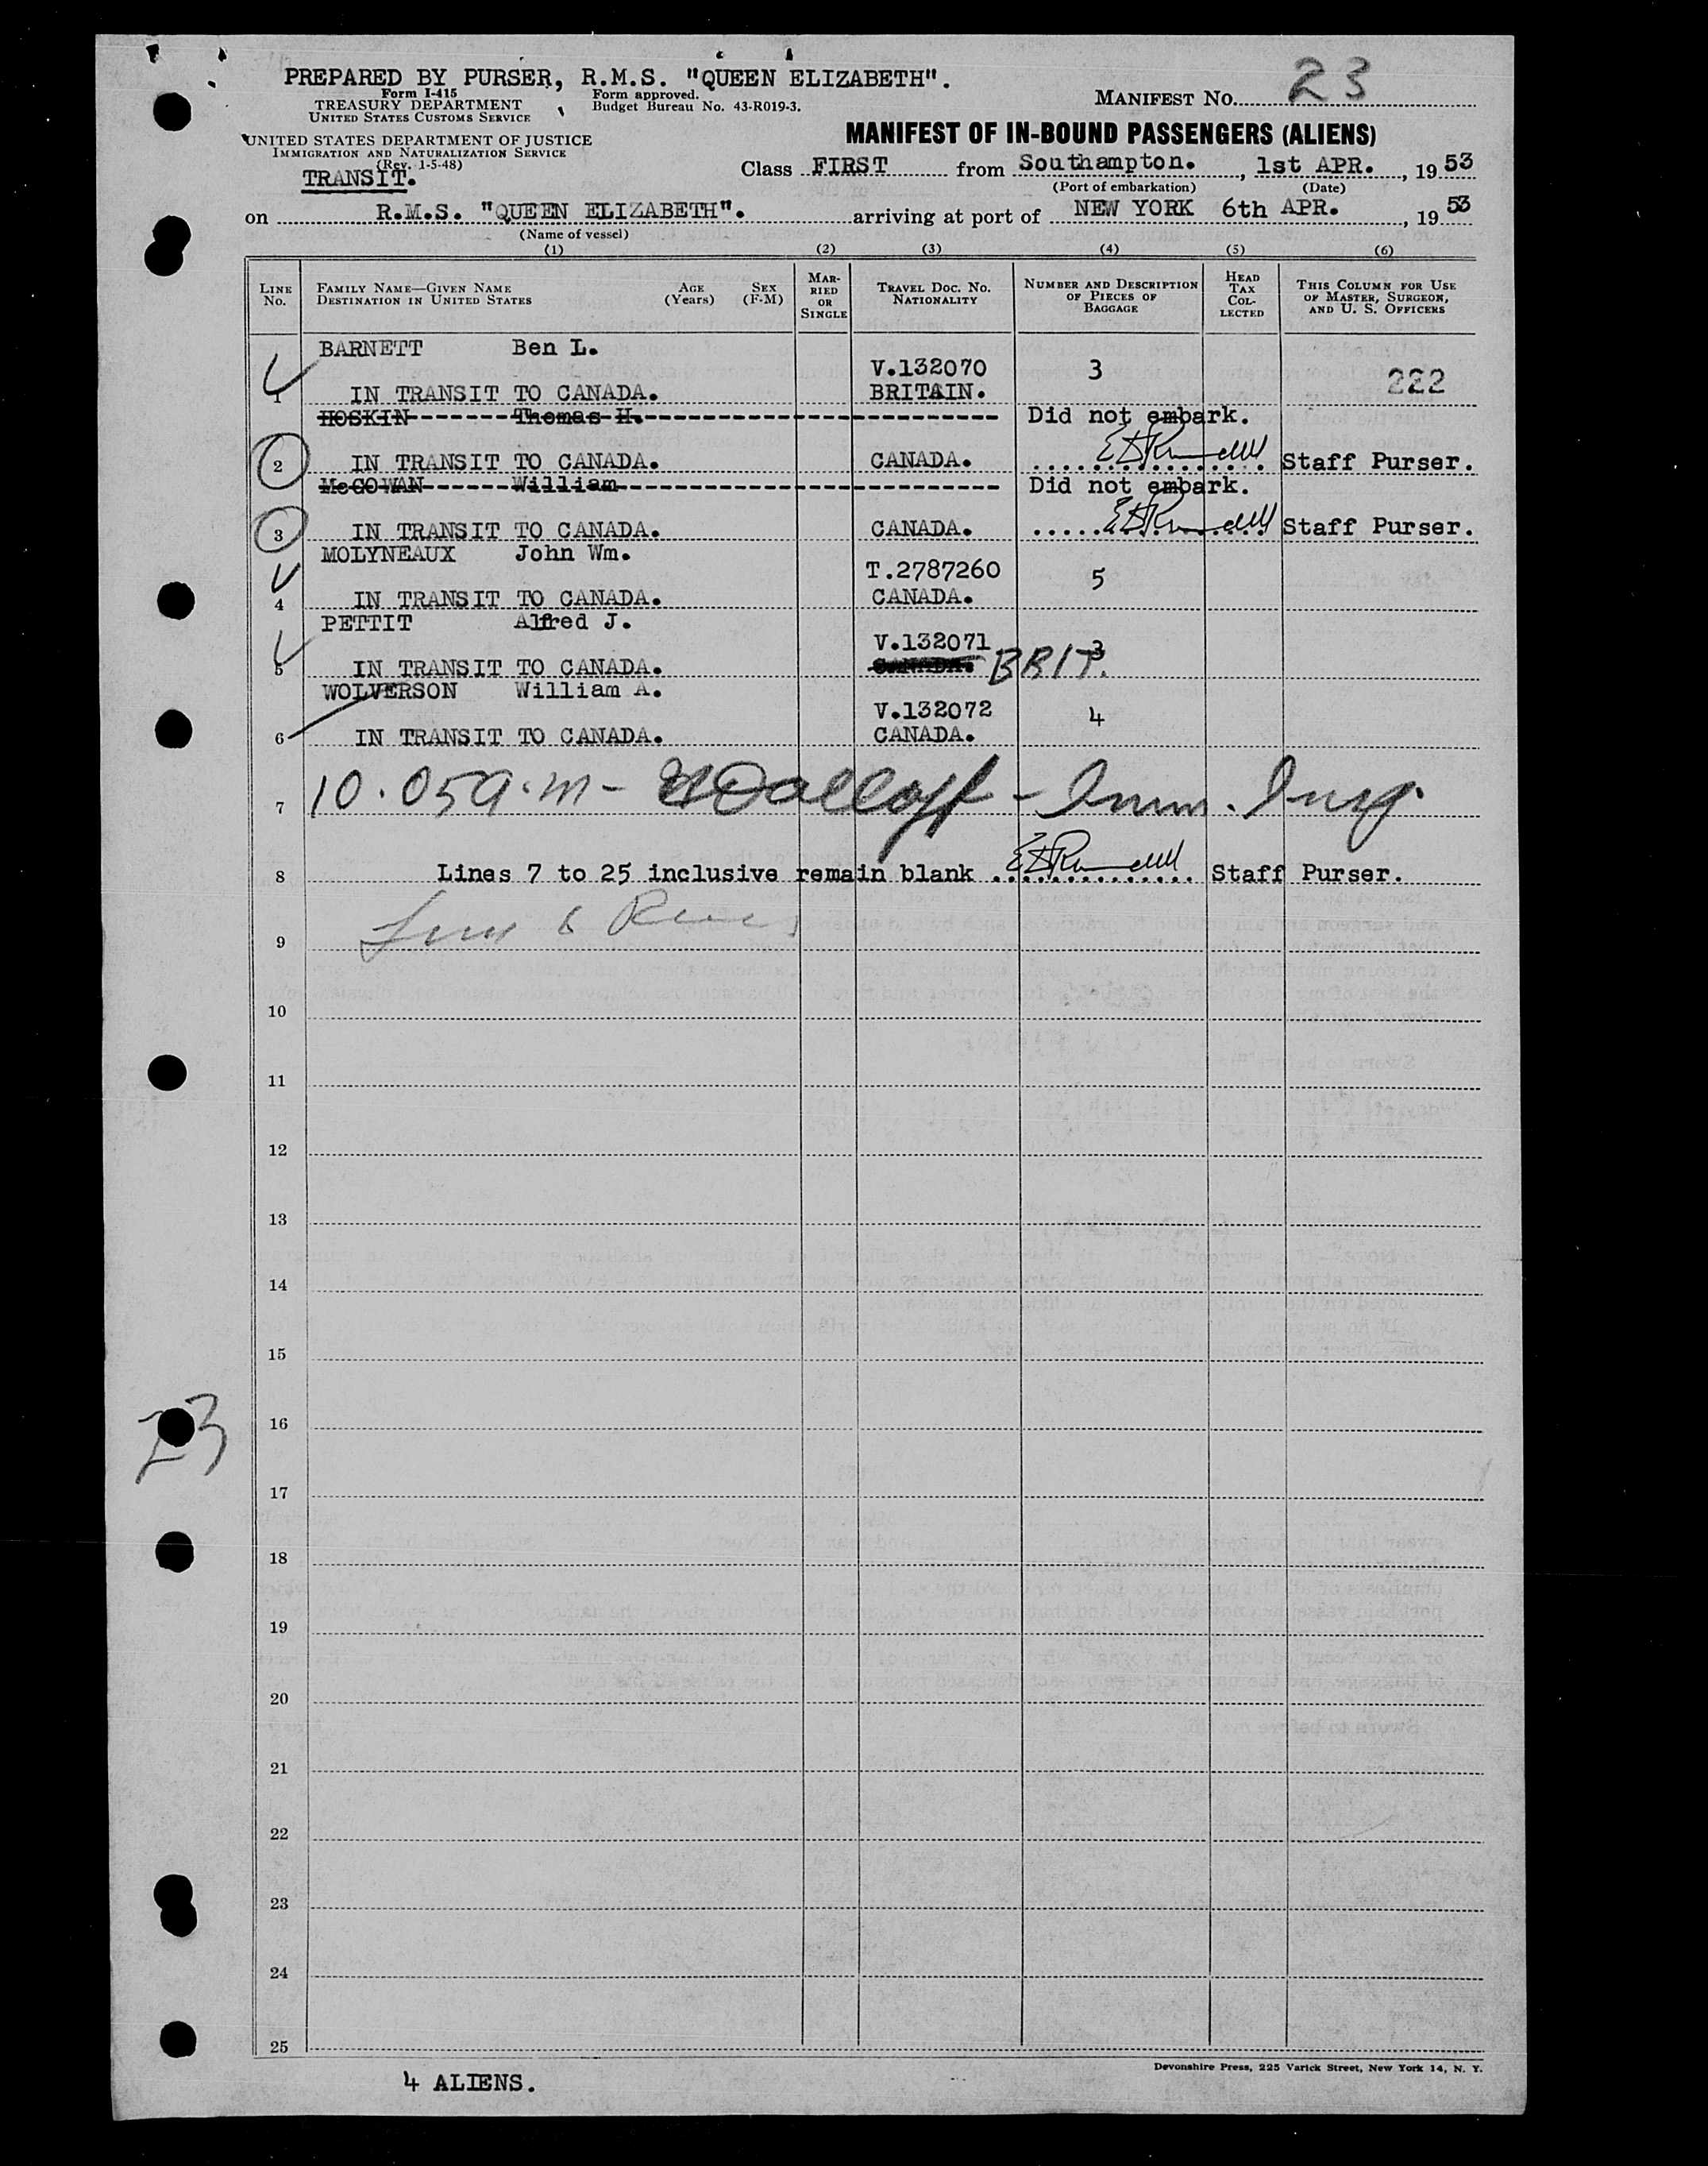 PREPARED BY PURSER, R.M.S. "QUEEN ELIZABETH".
Form I-415
TREASURY DEPARTMENT
UNITED STATES CUSTOMS SERVICE
Form approved.
Budget Bureau No. 43-R019-3.
MANIFEST NO. 23
UNITED STATES DEPARTMENT OF JUSTICE
IMMIGRATION AND NATURALIZATION SERVICE
(Rev. 1-5-48)
TRANSIT.
MANIFEST OF IN-BOUND PASSENGERS (ALIENS)
Class FIRST from Southampton. , 1st APR. , 19 53
(Port of embarkation) (Date)
on R.M.S. "QUEEN ELIZABETH". arriving at port of NEW YORK 6th APR. , 19 53
(Name of vessel)
(1) (2) (3) (4) (5) (6)
LINE NO.
FAMILY NAME—GIVEN NAME AGE SEX
DESTINATION IN UNITED STATES (Years) (F-M)
MARRIED OR SINGLE
TRAVEL DOC. NO. NATIONALITY
NUMBER AND DESCRIPTION OF PIECES OF BAGGAGE
HEAD TAX COLLECTED
THIS COLUMN FOR USE OF MASTER, SURGEON, AND U. S. OFFICERS
BARNETT Ben L.
V.132070 3
1 IN TRANSIT TO CANADA. BRITAIN. 222
HOSKIN Thomas H. Did not embark.
2 IN TRANSIT TO CANADA. CANADA. Staff Purser.
McGOWAN William Did not embark.
3 IN TRANSIT TO CANADA. CANADA. Staff Purser.
MOLYNEAUX John Wm.
T.2787260 5
4 IN TRANSIT TO CANADA. CANADA.
PETTIT Alfred J.
V.132071 3
5 IN TRANSIT TO CANADA. CANADA. BRIT.
WOLVERSON William A.
V.132072 4
6 IN TRANSIT TO CANADA. CANADA.
7 10.05 a.m - Imm. Insp.
8 Lines 7 to 25 inclusive remain blank Staff Purser.
9
10
11
12
13
14
15
16
23
17
18
19
20
21
22
23
24
25
Devonshire Press, 225 Varick Street, New York 14, N. Y.
4 ALIENS.